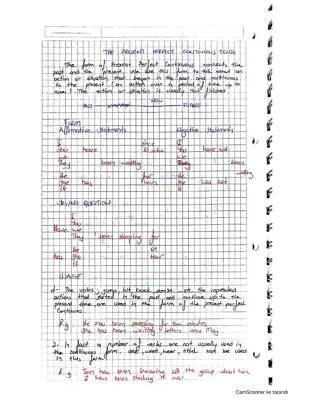 THE PRESENT PERFECT CONTINUOUS TENSE
The form of Present Perfect Continuous connects the
past and the present. We use this form to talk about an
action or situation that began in the past and continues
to the present (an action over a period of time up to
now). The action or situation is usually not
NOW
PAST FUTURE
FORM
Affirmative Statements Negative Statements
I since I
You have You have not
We We
They been waiting They been waiting
He for He
She has hours She has not
It It
QUESTION
I
You
Have we
They been sleeping for
He an
Has She hour
It
USAGE
1- The verbs, jump, hit, knock, etc. the repeated
actions that started in the past and continue up to the
present time are used in the form of the present perfect
Continuous
E.g He has been for two minutes
She has been writing letters since May
2- In fact a number of verbs are not usually used in
the continuous form. want, hear, can not be used
in this form
E.g Tom has been hearing all the about him
I have been thinking it over
CamScanner ile tarandı